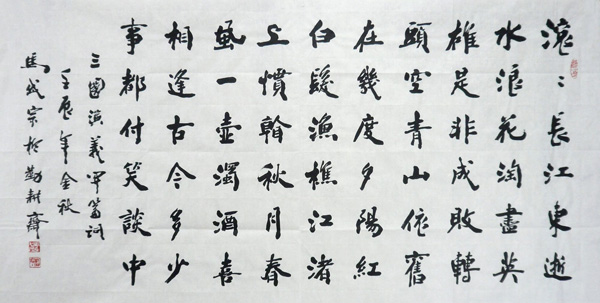 滚〻長江東逝
水浪花淘盡英
雄是非成敗轉
頭空青山依舊
在幾度夕陽紅
白髮漁樵江渚
上慣看秋月春
風一壺濁酒喜
相逢古今多少
事都付笑談中
三國演義開篇詞
壬辰年金秋
馬成宗於勤耕齋